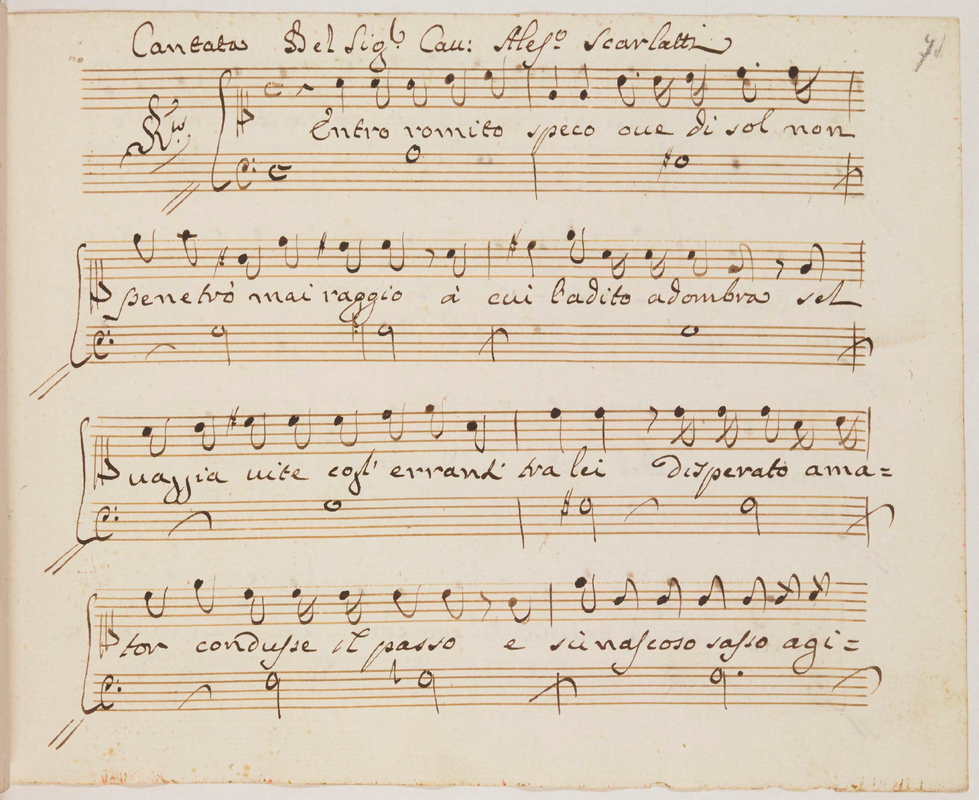 Cantata Del Sig.r Cau: Aless.o Scarlatti
71
R.vo
Entro romito speco oue di sol non
penetrò mai raggio à cui l'adito adombra sel
uaggia uite cogl' erranti tralci disperato ama=
tor condusse il passo e sù nascoso sasso agi=